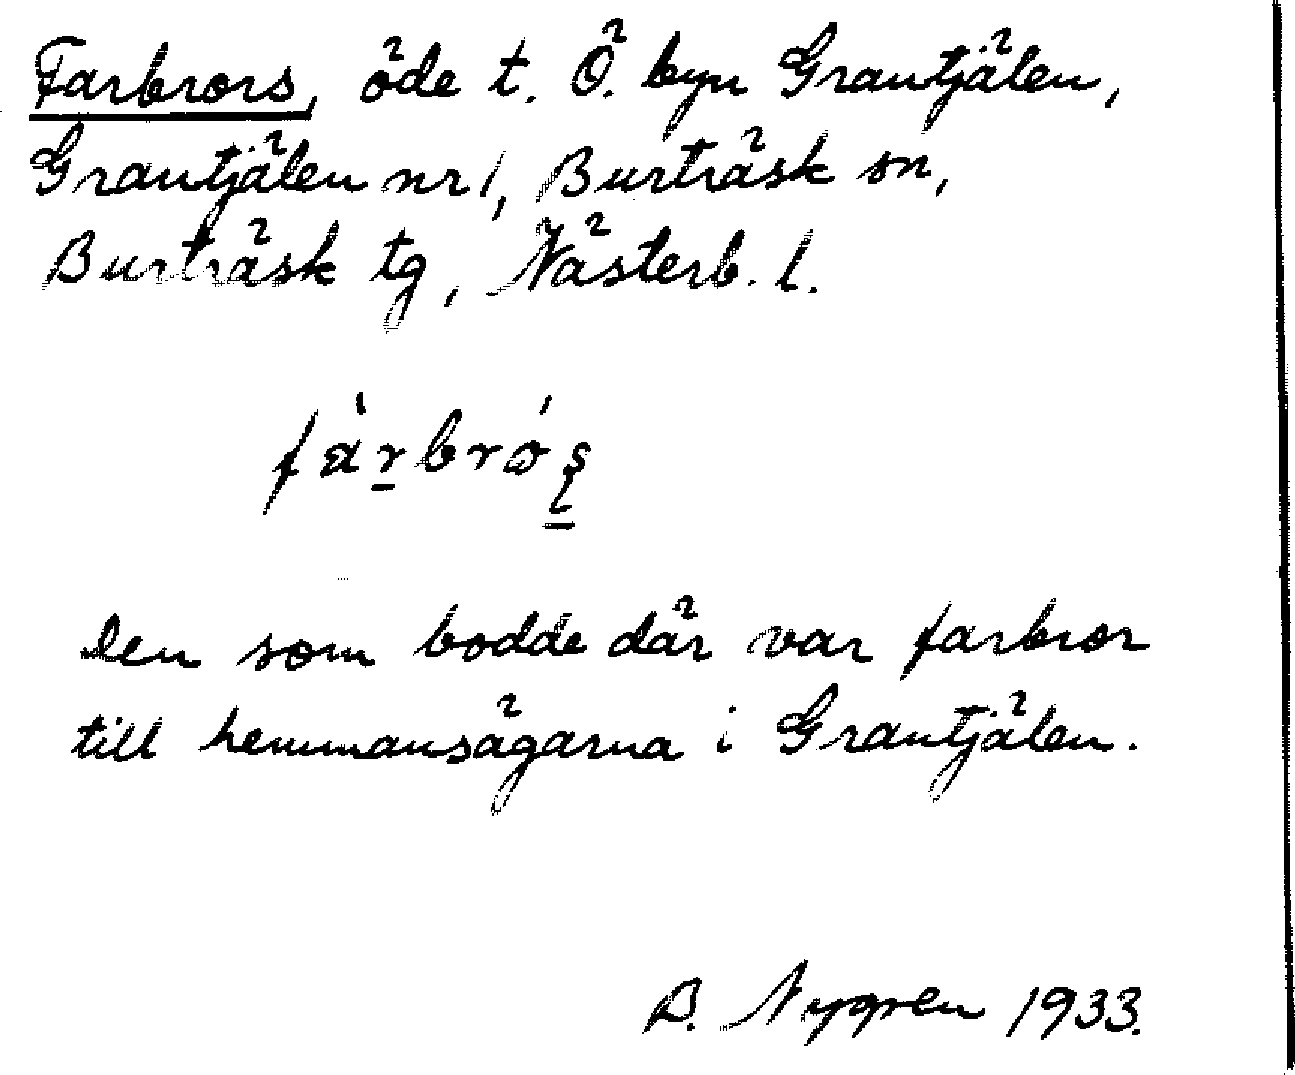 Farbrors, öde t. Ö. byn Grantjälen,
Grantjälen nr 1, Burträsk sn,
Burträsk tg, Västerb. l.
fàrbrós
Den som bodde där var farbror
till hemmansägarna i Grantjälen.
B. Nygren 1933.